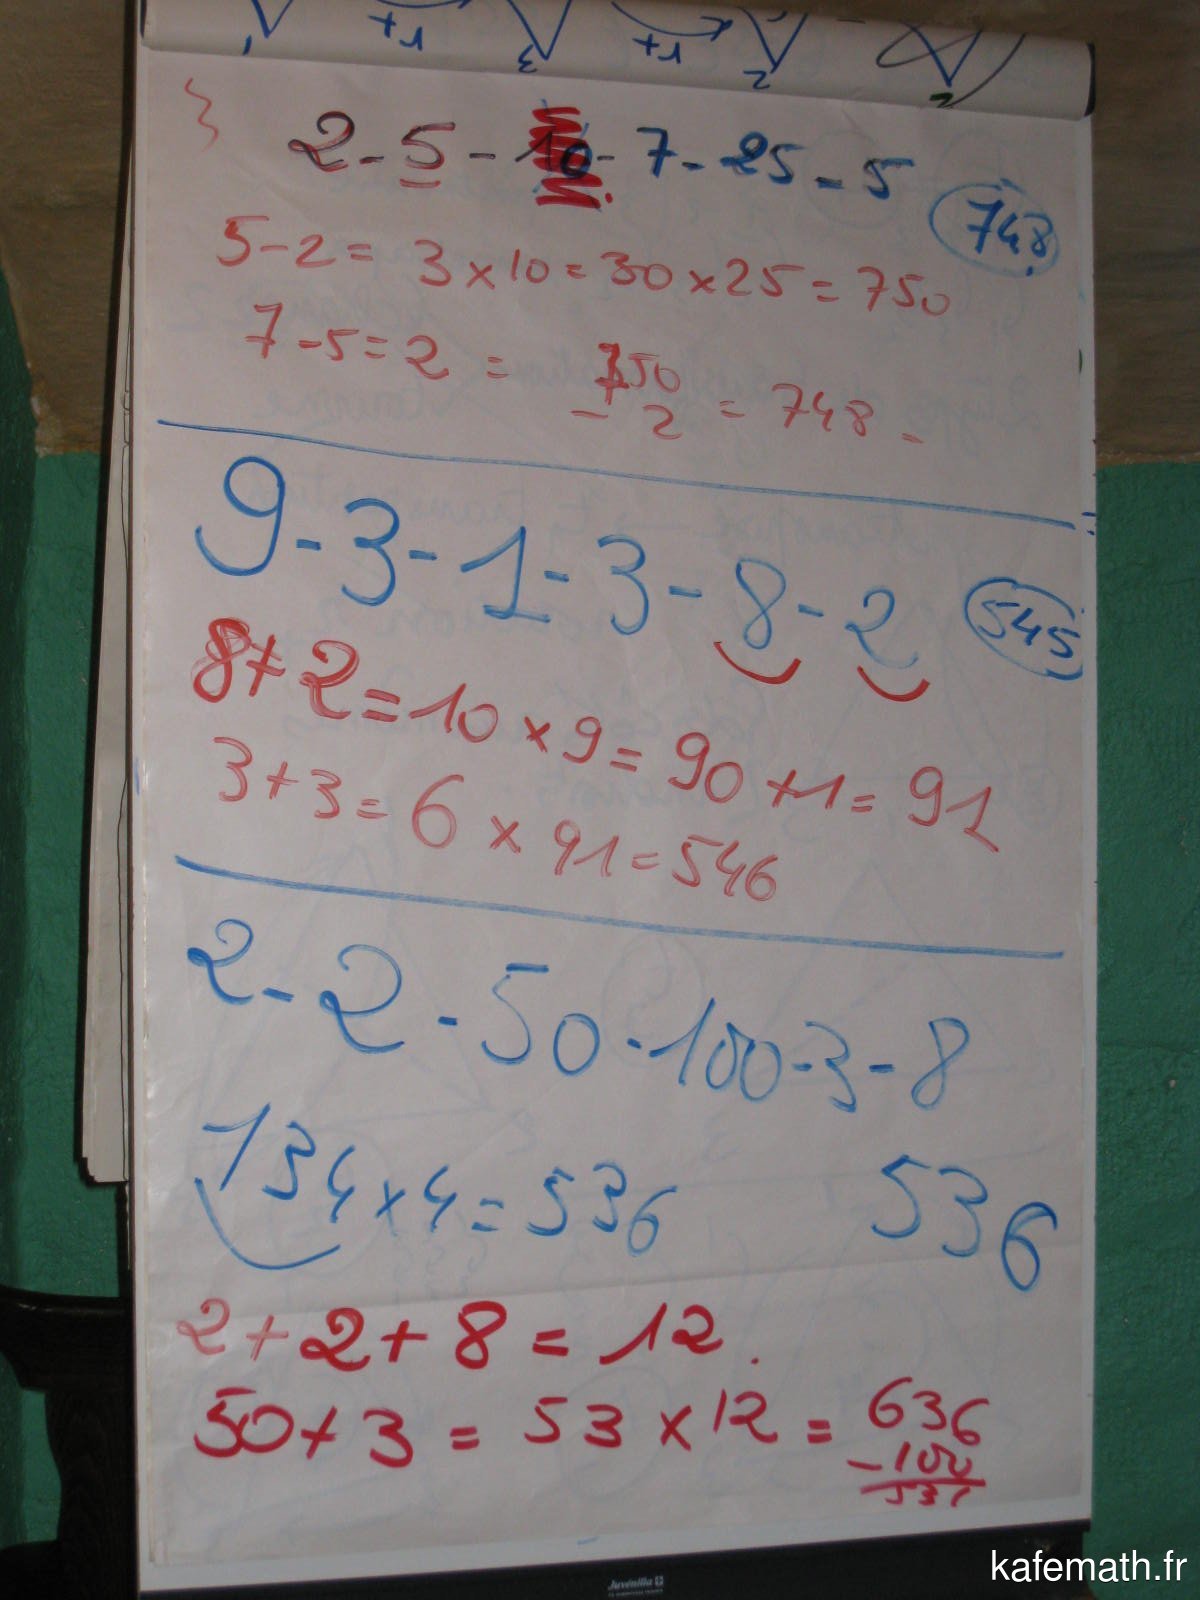 2 - 5 - 10 - 7 - 25 - 5
748
5 - 2 = 3 x 10 = 30 x 25 = 750
7 - 5 = 2 = 750
- 2 = 748
9 - 3 - 1 - 3 - 8 - 2
545
8 + 2 = 10 x 9 = 90 + 1 = 91
3 + 3 = 6 x 91 = 546
2 - 2 - 50 - 100 - 3 - 8
134 x 4 = 536
536
2 + 2 + 8 = 12.
50 + 3 = 53 x 12 = 636
- 100
Juvenilia
kafemath.fr